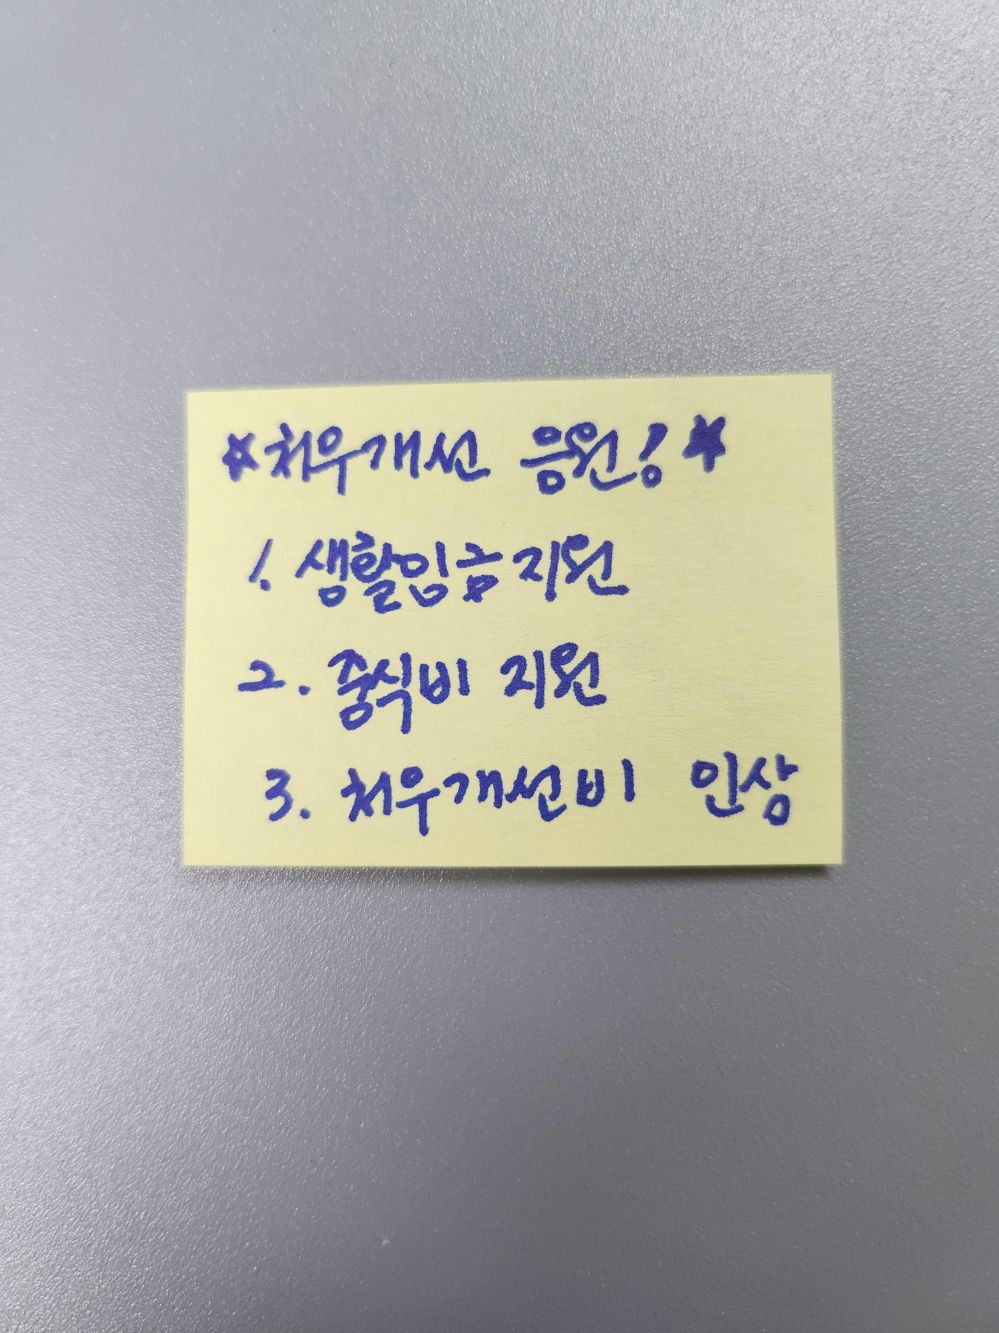 ☆처우개선 응원!★
1. 생활임금지원
2. 중식비 지원
3. 처우개선비 인상